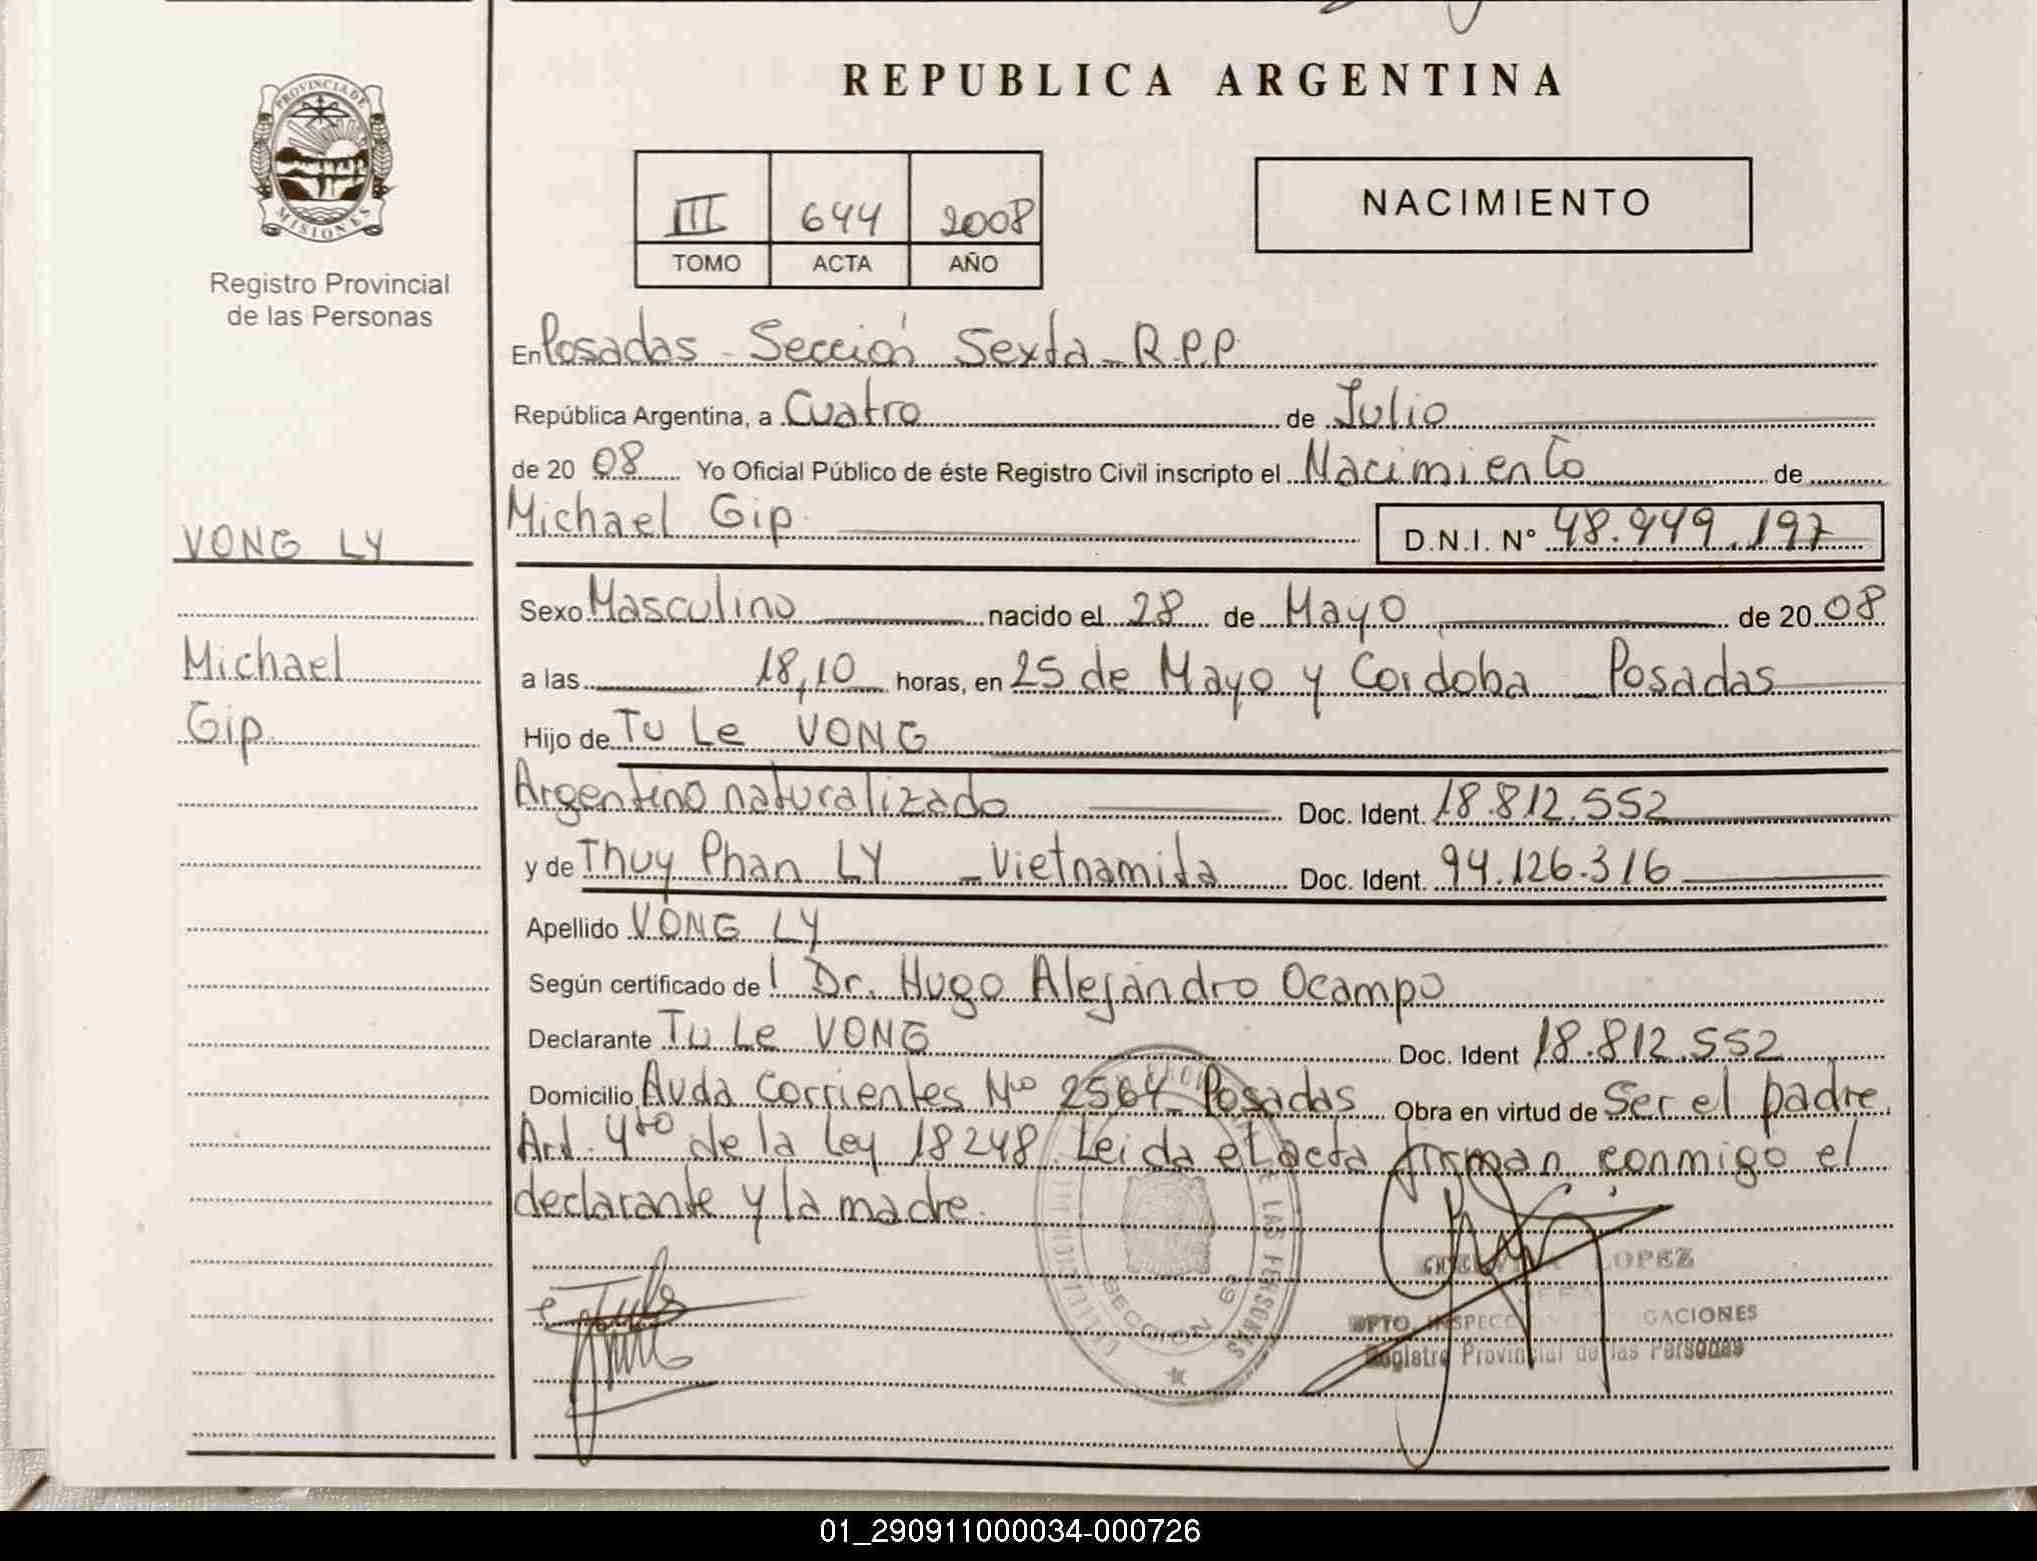 REPUBLICA ARGENTINA
PROVINCIA DE
MISIONES
Registro Provincial
de las Personas
III 644 2008
TOMO ACTA AÑO
NACIMIENTO
En Posadas - Sección Sexta - R.P.P
República Argentina, a Cuatro de Julio
de 20 08 Yo Oficial Público de éste Registro Civil inscripto el Nacimiento de
Michael Gip. D.N.I. Nº 48.949.197
VONG LY
Michael
Gip.
Sexo Masculino nacido el 28 de Mayo de 20 08
a las 18,10 horas, en 25 de Mayo y Cordoba - Posadas
Hijo de Tu Le VONG
Argentino naturalizado Doc. Ident. 18.812.552
y de Thuy Phan LY - Vietnamida Doc. Ident. 94.126.316
Apellido VONG LY
Según certificado de l Dr. Hugo Alejandro Ocampo
Declarante Tu Le VONG Doc. Ident 18.812.552
Domicilio Avda Corrientes Nº 2564 Posadas Obra en virtud de Ser el padre.
Art. 4to de la ley 18248. Leida el acta firman conmigo el
declarante y la madre.
LAS PERSONAS
SECCION 6
LOPEZ
DPTO. GACIONES
Registro Provincial de las Personas
01_290911000034-000726